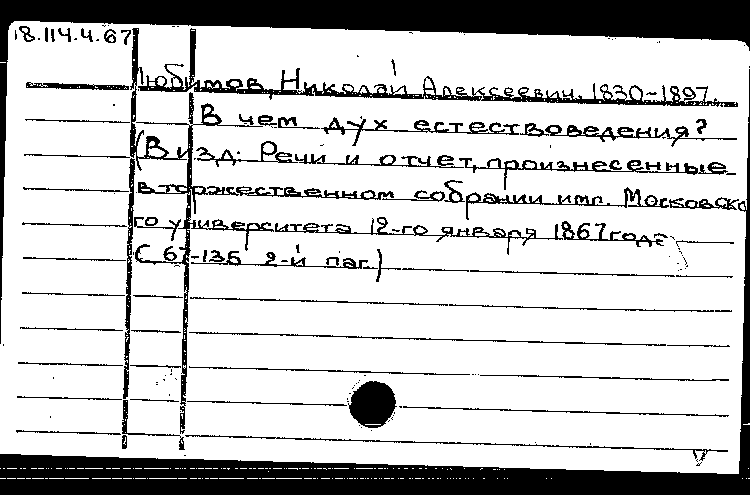 18.114.4.67
Любимов, Николай Алексеевич. 1830-1897.
В чем дух естествоведения?
(В изд: Речи и отчет, произнесенные
в торжественном собрании имп. Московско
го университета 12-го января 1867 года
С 67-135 2-й паг.)